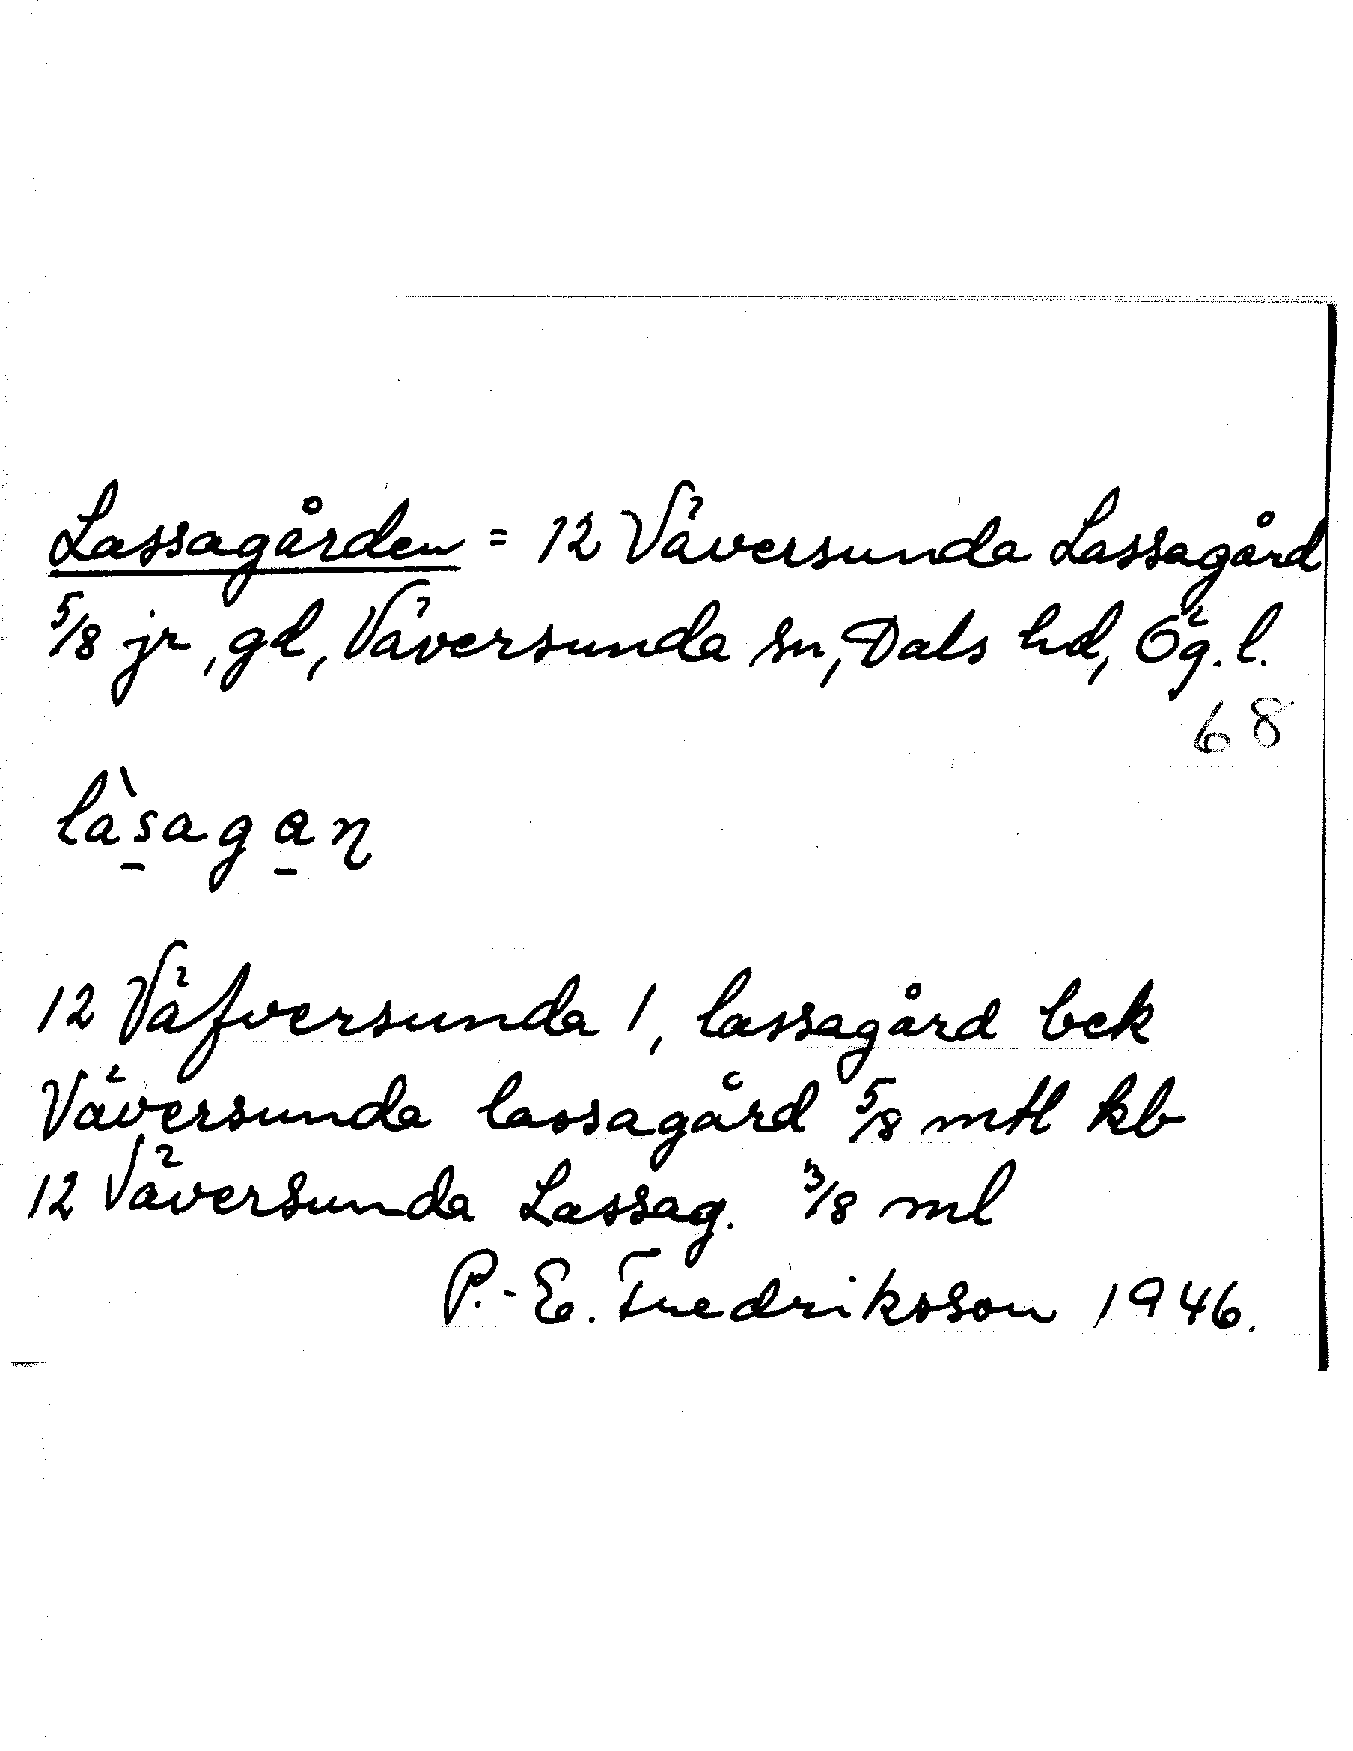 Lassagården = 12 Väversunda Lassagård
5/8 jr, gd, Väversunda sn, Dals hd, Ög. l.
68
là̱saga̱ɳ
12 Väfversunda 1, lassagård bek
Väversunda lassagård 5/8 mtl kb
12 Väversunda Lassag. 3/8 ml
P.-E. Fredriksson 1946.